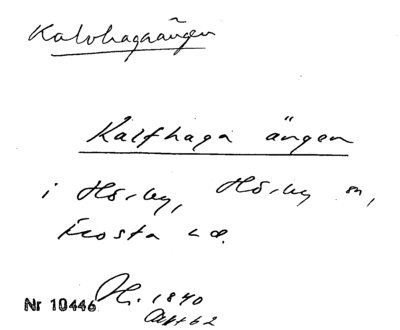 Kalvhagaängen
Kalfhaga ängen
i Hörby, Hörby sn,
Frosta hd.
Nr 10446 H. 1840
Akt 62